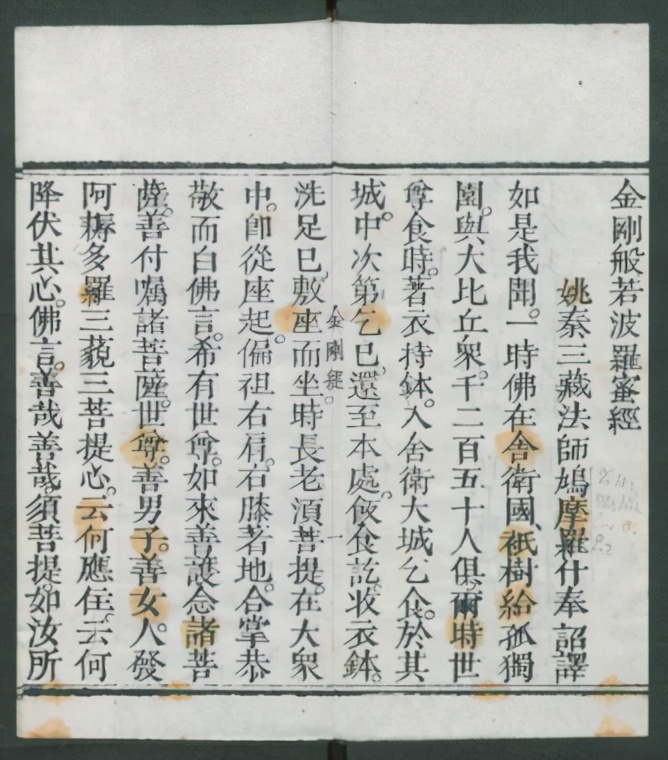 金剛般若波羅蜜經
姚秦三藏法師鳩摩羅什奉詔譯
如是我聞。一時佛在舍衛國、祇樹給孤獨
園。與大比丘眾。千二百五十人俱。爾時世
尊食時。著衣持鉢。入舍衛大城乞食。於其
城中。次第乞已。還至本處。飯食訖。收衣鉢。
金剛經 一
洗足已。敷座而坐。時長老湏菩提。在大眾
中。卽從座起。偏袒右肩。右膝著地。合掌恭
敬而白佛言。希有世尊。如來善護念諸菩
薩。善付嘱諸菩薩。世尊。善男子。善女人。發
阿耨多羅三藐三菩提心。云何應住。云何
降伏其心。佛言。善哉善哉。須菩提。如汝所